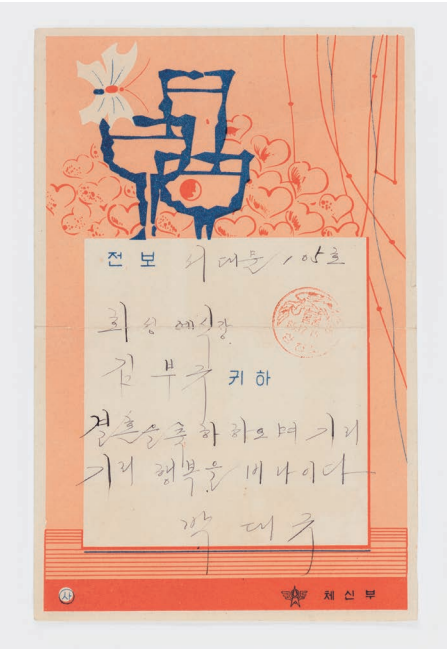 전보 서대문 105호
희성예식장
김부국 귀하
결혼을 축하하오며 기리
기리 행복을 비나이다
박대국
사
체신부